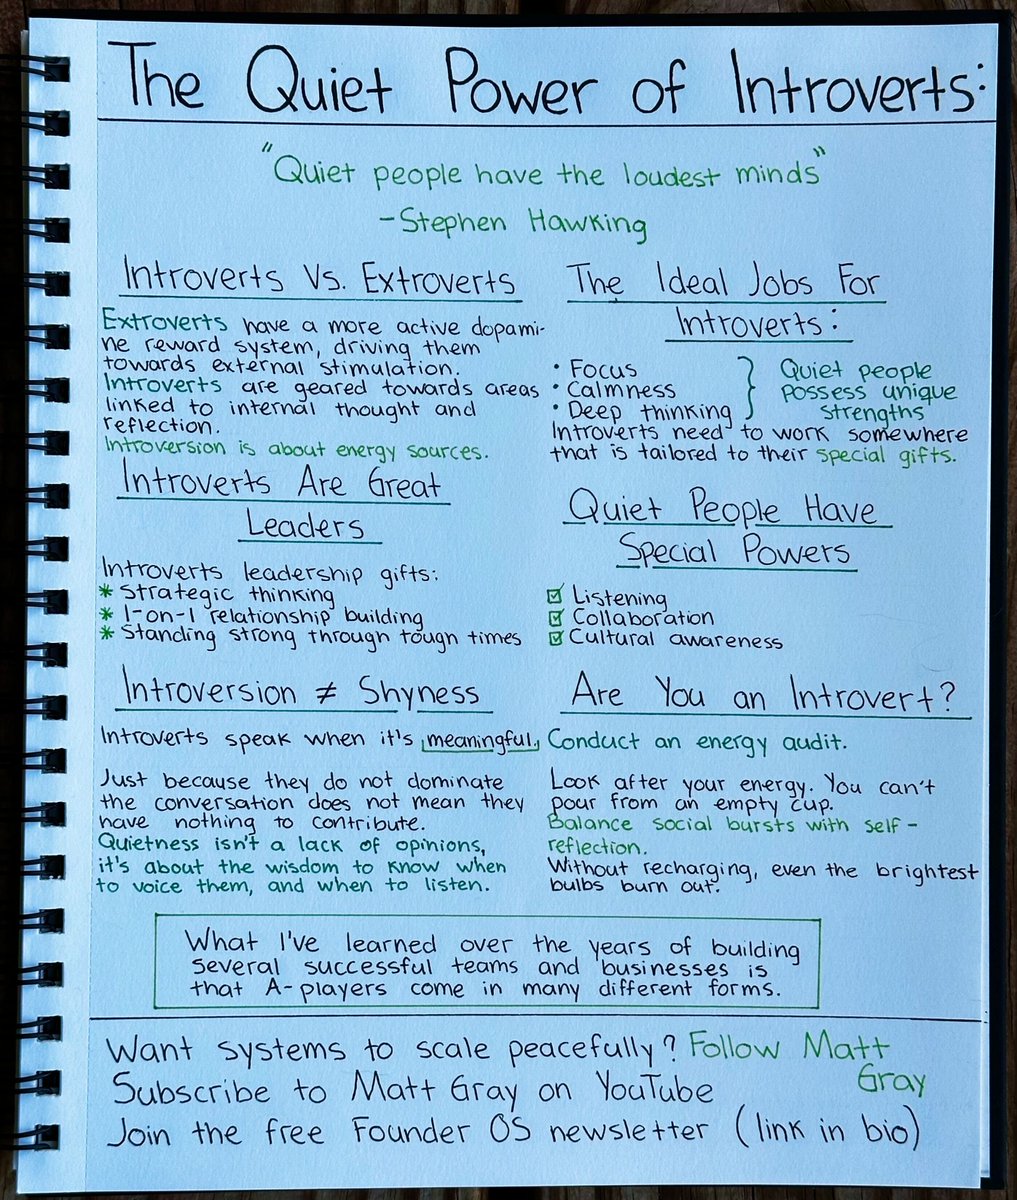 The Quiet Power of Introverts:
"Quiet people have the loudest minds"
-Stephen Hawking
Introverts Vs. Extroverts
Extroverts have a more active dopami-
ne reward system, driving them
towards external stimulation.
Introverts are geared towards areas
linked to internal thought and
reflection.
Introversion is about energy sources.
The Ideal Jobs For
Introverts:
• Focus
• Calmness
• Deep thinking
Quiet people
possess unique
strengths
Introverts need to work somewhere
that is tailored to their special gifts.
Introverts Are Great
Leaders
Introverts leadership gifts:
* Strategic thinking
* 1-on-1 relationship building
* Standing strong through tough times
Quiet People Have
Special Powers
☑ Listening
☑ Collaboration
☑ Cultural awareness
Introversion ≠ Shyness
Introverts speak when it's meaningful.
Just because they do not dominate
the conversation does not mean they
have nothing to contribute.
Quietness isn't a lack of opinions,
it's about the wisdom to know when
to voice them, and when to listen.
Are You an Introvert?
Conduct an energy audit.
Look after your energy. You can't
pour from an empty cup.
Balance social bursts with self-
reflection.
Without recharging, even the brightest
bulbs burn out.
What I've learned over the years of building
several successful teams and businesses is
that A-players come in many different forms.
Want systems to scale peacefully? Follow Matt
Gray
Subscribe to Matt Gray on YouTube
Join the free Founder OS newsletter (link in bio)